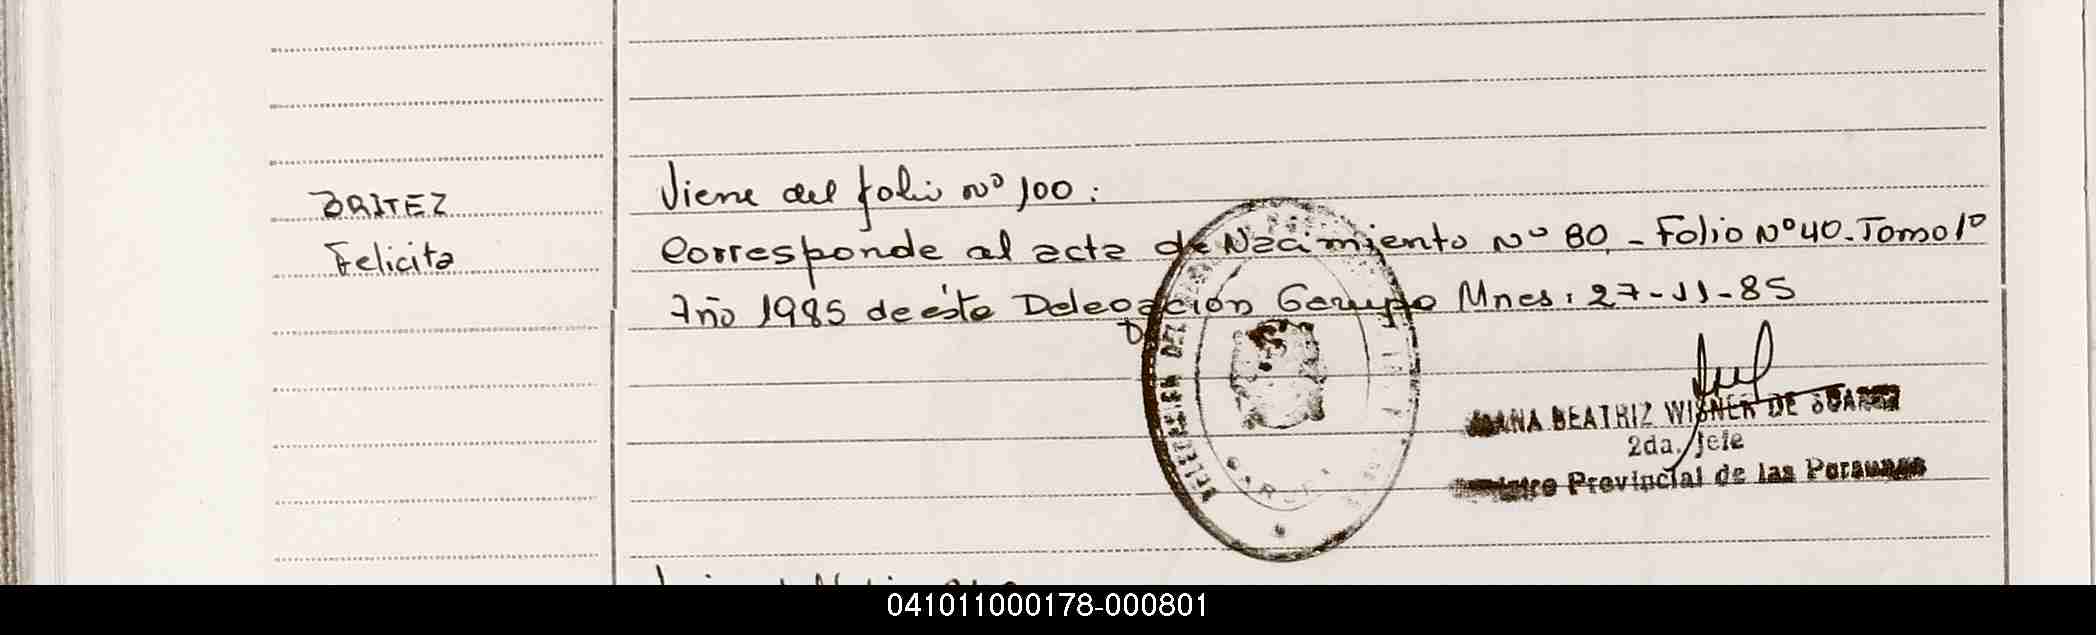 BRITEZ
Felicita
Viene del folio nº 100:
Corresponde al acta de Nacimiento Nº 80 - Folio Nº 40. Tomo 1º
Año 1985 de ésta Delegación Garupa Mnes: 27-11-85
DELEGACION DEL
GARUPA
JUANA BEATRIZ WISNER DE SUAREZ
2da. Jefe
Registro Provincial de las Personas
041011000178-000801